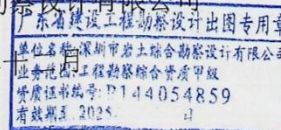 勘察设计有限公司
广东省建设工程勘察设计出图专用章
单位名称:深圳市岩土综合勘察设计有限公司
业务范围:工程勘察综合资质甲级
资质证书编号:B144054859
有效期至:2025
十 月 日